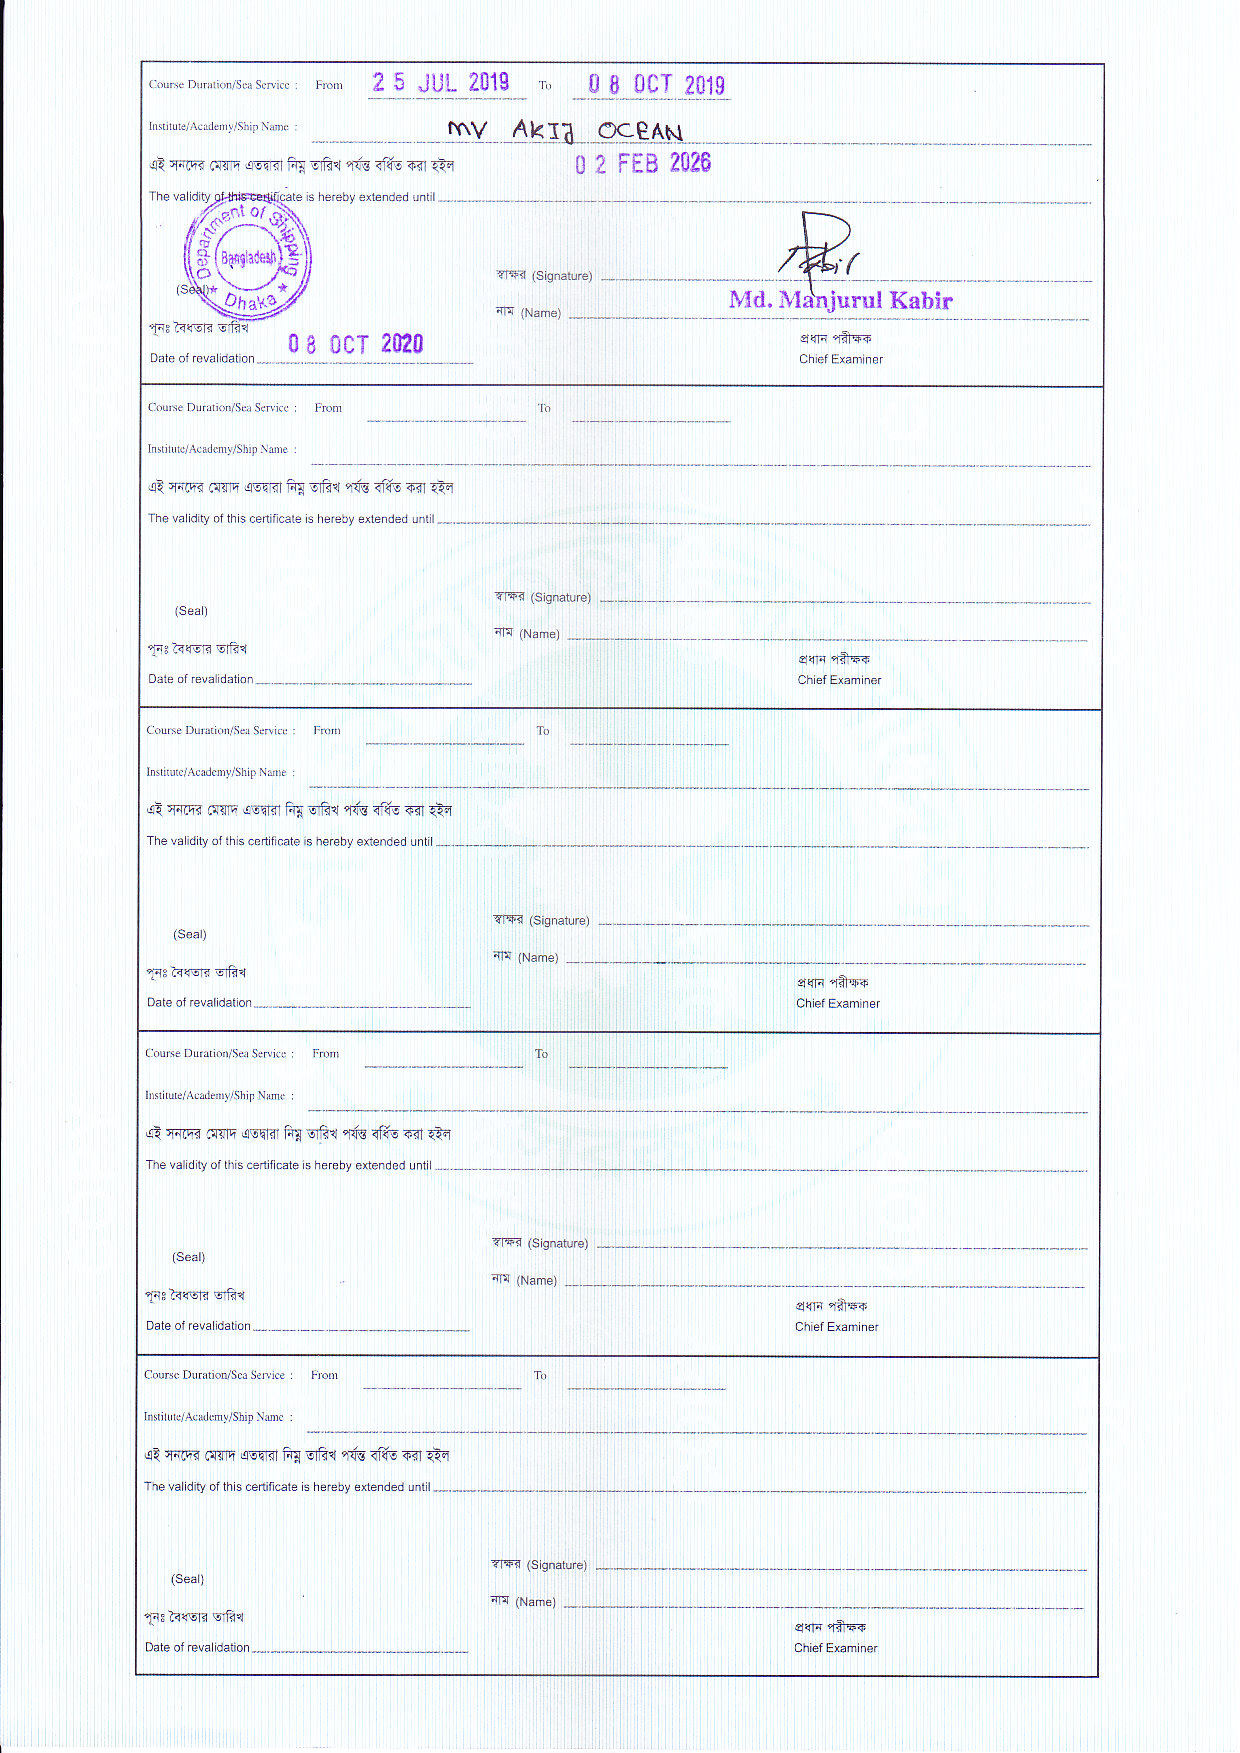 Course Duration/Sea Service : From 25 JUL 2019 To 08 OCT 2019
Institute/Academy/Ship Name : MV AKIJ OCEAN
এই সনদের মেয়াদ এতদ্বারা নিম্ন তারিখ পর্যন্ত বর্ধিত করা হইল 02 FEB 2026
The validity of this certificate is hereby extended until
Department of Shipping
Bangladesh
★ Dhaka ★
স্বাক্ষর (Signature) Kabir
(Seal)
Md. Manjurul Kabir
নাম (Name)
পূনঃ বৈধতার তারিখ
প্রধান পরীক্ষক
Date of revalidation 08 OCT 2020
Chief Examiner
Course Duration/Sea Service : From To
Institute/Academy/Ship Name :
এই সনদের মেয়াদ এতদ্বারা নিম্ন তারিখ পর্যন্ত বর্ধিত করা হইল
The validity of this certificate is hereby extended until
স্বাক্ষর (Signature)
(Seal)
নাম (Name)
পূনঃ বৈধতার তারিখ
প্রধান পরীক্ষক
Date of revalidation Chief Examiner
Course Duration/Sea Service : From To
Institute/Academy/Ship Name :
এই সনদের মেয়াদ এতদ্বারা নিম্ন তারিখ পর্যন্ত বর্ধিত করা হইল
The validity of this certificate is hereby extended until
স্বাক্ষর (Signature)
(Seal)
নাম (Name)
পূনঃ বৈধতার তারিখ
প্রধান পরীক্ষক
Date of revalidation Chief Examiner
Course Duration/Sea Service : From To
Institute/Academy/Ship Name :
এই সনদের মেয়াদ এতদ্বারা নিম্ন তারিখ পর্যন্ত বর্ধিত করা হইল
The validity of this certificate is hereby extended until
স্বাক্ষর (Signature)
(Seal)
নাম (Name)
পূনঃ বৈধতার তারিখ
প্রধান পরীক্ষক
Date of revalidation Chief Examiner
Course Duration/Sea Service : From To
Institute/Academy/Ship Name :
এই সনদের মেয়াদ এতদ্বারা নিম্ন তারিখ পর্যন্ত বর্ধিত করা হইল
The validity of this certificate is hereby extended until
স্বাক্ষর (Signature)
(Seal)
নাম (Name)
পূনঃ বৈধতার তারিখ
প্রধান পরীক্ষক
Date of revalidation Chief Examiner